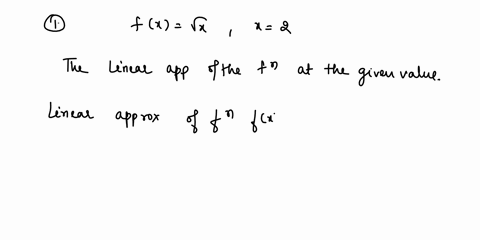 ① f(x) = √x , x = 2
The linear app of the fⁿ at the given value.
Linear approx of fⁿ f(x